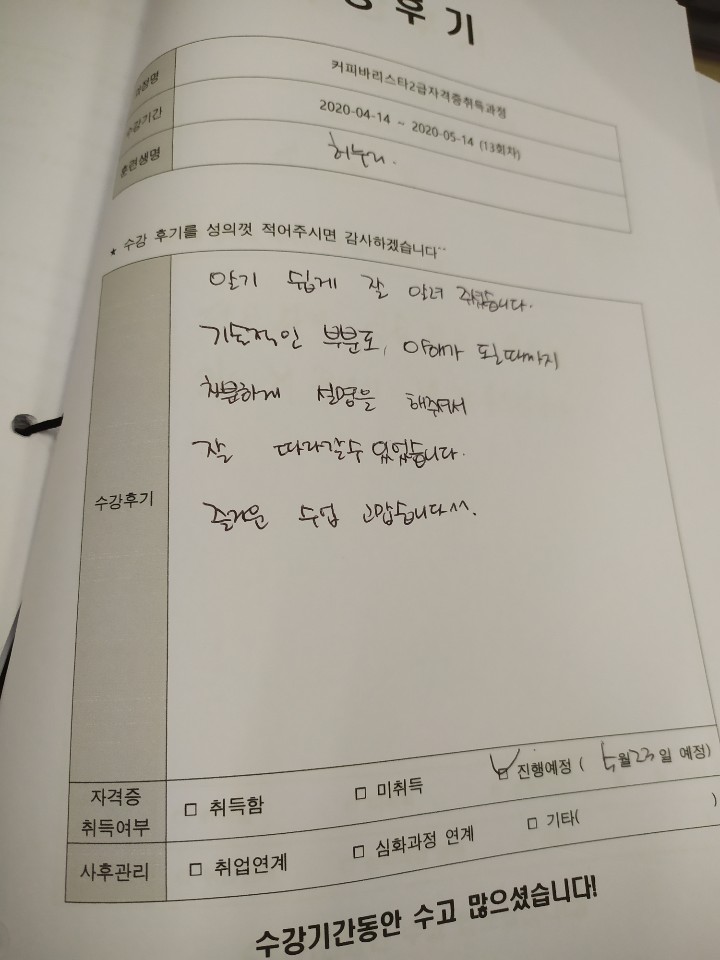 강후기
과정명 커피바리스타2급자격증취득과정
수강기간 2020-04-14 ~ 2020-05-14 (13회차)
훈련생명
★ 수강 후기를 성의껏 적어주시면 감사하겠습니다^^
수강후기
알기 쉽게 잘 알려 주셨습니다.
기술적인 부분도, 이해가 될때까지
차분하게 설명을 해주셔서
잘 따라갈수 있었습니다.
즐거운 수업 고맙습니다^^.
자격증
취득여부 □ 취득함 □ 미취득 □ 진행예정 ( 5월23일 예정)
사후관리 □ 취업연계 □ 심화과정 연계 □ 기타( )
수강기간동안 수고 많으셨습니다!